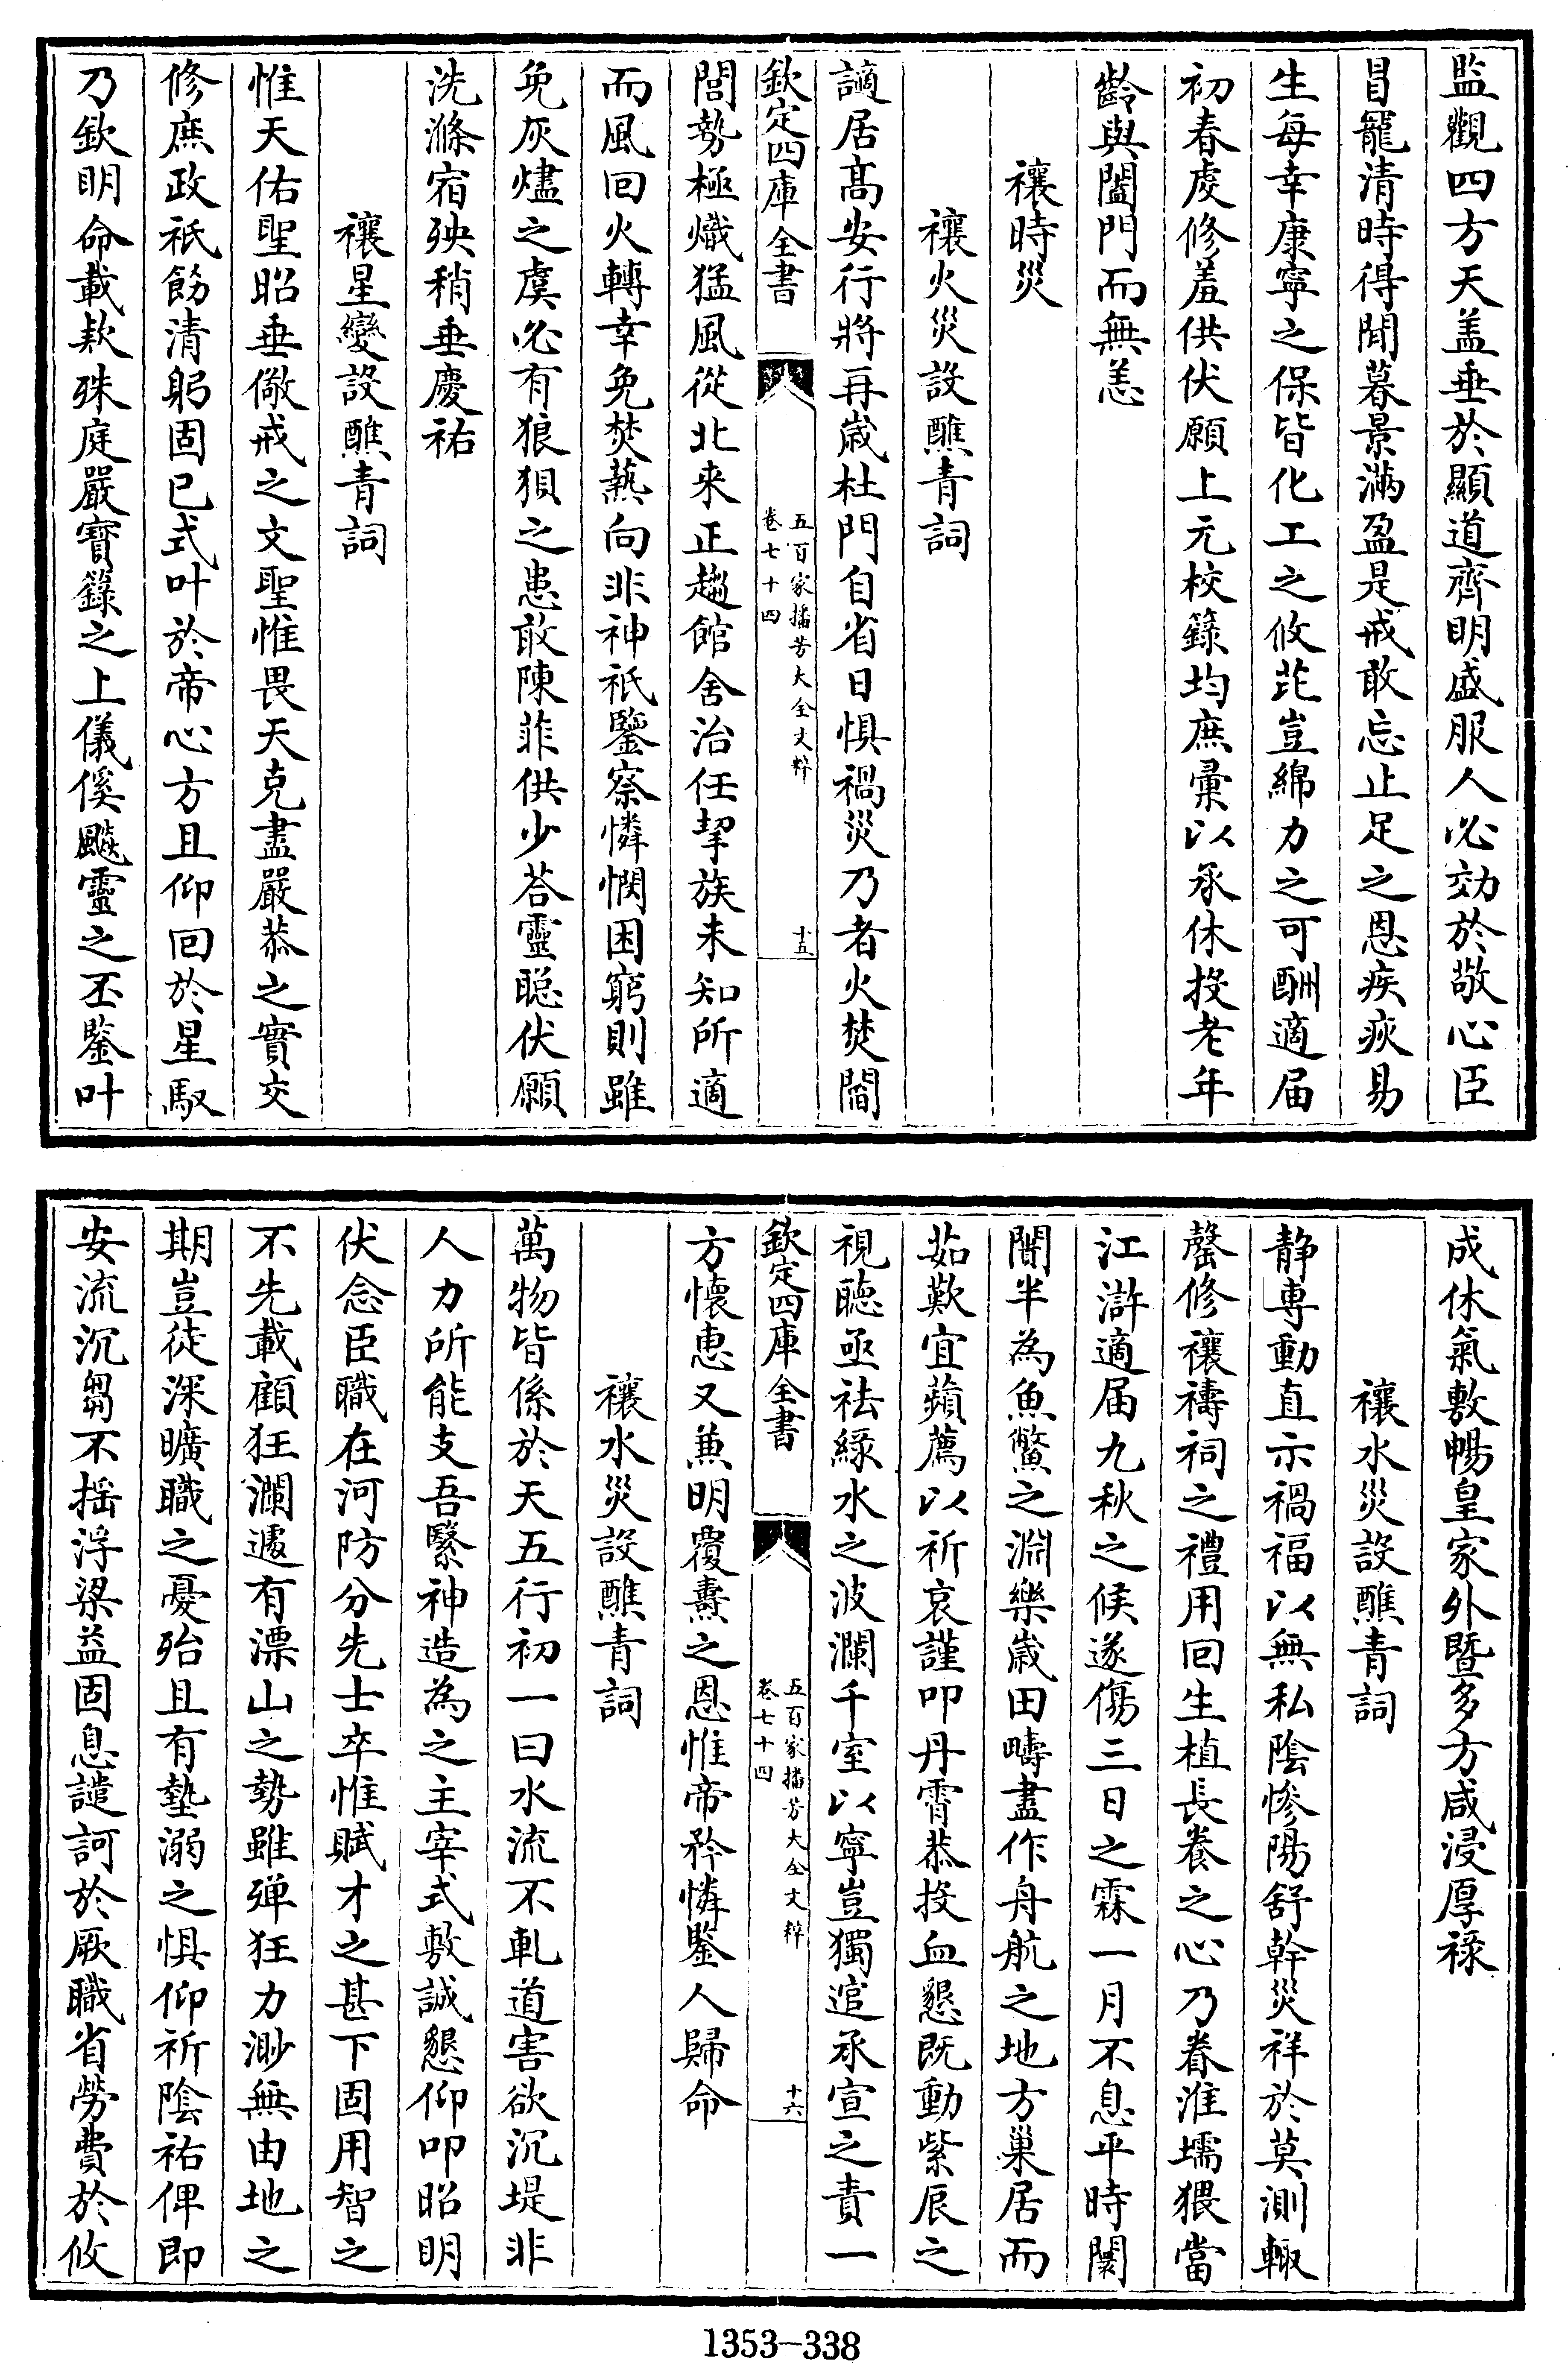 監觀四方天盖垂於顯道齊明盛服人必効於敬心臣
冒寵清時得閒暮景滿盈是戒敢忘止足之恩疾疢易
生每幸康寧之保皆化工之攸芘豈綿力之可酬適届
初春虔修羞供伏願上元校籙均庶彙以承休投老年
齡與闔門而無恙
禳時災
禳火災設醮青詞
謫居髙安行將再嵗杜門自省日惧禍災乃者火焚閻
欽定四庫全書
五百家播芳大全文粹
卷七十四
十五
閭勢極熾猛風從北來正趨館舍治任挈族未知所適
而風回火轉幸免焚爇向非神祇鑒察憐憫困窮則雖
免灰燼之虞必有狼狽之患敢陳菲供少荅靈聪伏願
洗滌宿殃稍垂慶祐
禳星變設醮青詞
惟天佑聖昭垂儆戒之文聖惟畏天克盡嚴恭之實交
修庶政祇飭清躬固已式叶於帝心方且仰回於星馭
乃欽明命載款殊庭嚴寶籙之上儀傒飈靈之丕鑒叶
成休氣敷暢皇家外暨多方咸浸厚祿
禳水災設醮青詞
静専動直示禍福以無私陰慘陽舒幹災祥於莫測輙
罄修禳禱祠之禮用回生植長養之心乃眷淮壖猥當
江滸適届九秋之候遂傷三日之霖一月不息平時闤
闠半為魚鱉之淵樂嵗田疇盡作舟航之地方巢居而
茹歎宜蘋薦以祈哀謹叩丹霄恭投血懇既動紫宸之
視聴亟祛緑水之波瀾千室以寧豈獨逭承宣之責一
欽定四庫全書
五百家播芳大全文粹
卷七十四
十六
方懷恵又兼明覆燾之恩惟帝矜憐鑒人歸命
禳水災設醮青詞
萬物皆係於天五行初一曰水流不軋道害欲沉堤非
人力所能支吾繄神造為之主宰式敷誠懇仰叩昭明
伏念臣職在河防分先士卒惟賦才之甚下固用智之
不先載顧狂瀾遽有漂山之勢雖殫狂力渺無由地之
期豈徒深曠職之憂殆且有墊溺之惧仰祈陰祐俾即
安流沉芻不揺浮梁益固息譴訶於厥職省勞費於攸
1353-338